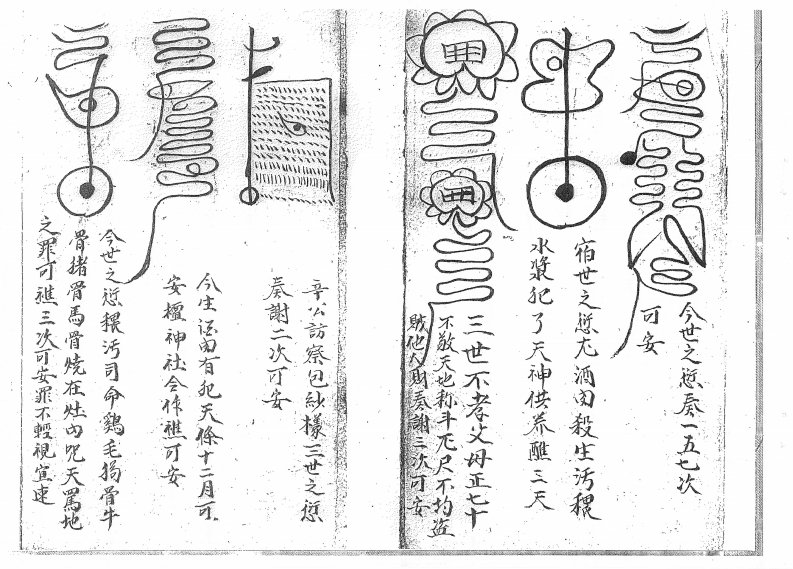 今世之愆奏一五七次
可安
宿世之愆尤酒肉殺生污穢
水漿犯了天神供养醮三天
三世不孝父母正七十
不敬天地称斗尺不均盗
賊他人財奏謝三次可安
辛公訪察包紗樣三世之愆
奏謝二次可安
今生酒肉有犯天條十二月可
安檀神社令作醮可安
今世之愆穢污司命鷄毛狗骨牛
骨猪骨馬骨燒在灶内咒天罵地
之罪可醮三次可安罪不輕視宜速